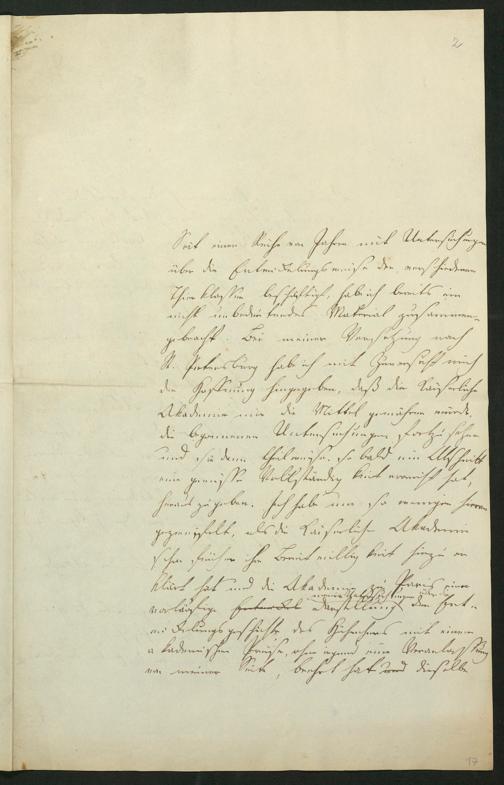 2
Seit einer Reihe von Jahren mit Untersuchungen
über die Entwickelungsweise der verschiedenen
Thierklassen beschäftigt, habe ich bereits ein
nicht unbedeutendes Material zusammen-
gebracht. Bei meiner Versetzung nach
St. Petersburg habe ich mit Zuversicht mich
der Hoffnung hingegeben, daß die Kaiserliche
Akademie mir die Mittel gewähren würde,
die begonnenen Untersuchungen fortzusetzen
und sie dann theilweise, so bald ein Abschnitt
eine gewisse Vollständigkeit erreicht hat,
herauszugeben. Ich habe um so weniger hieran
gezweifelt, als die Kaiserliche Akademie
schon früher ihre Bereitwilligkeit hierzu er
klärt hat und die Akademie zu Paris eine
meiner Untersuchungen über
vorläufige Darstellung der Ent-
wickelungsgeschichte des Hühnchens mit einem
akademischen Preise, ohne irgend eine Veranlassung
von meiner Seite, beehrt hat und dieselbe
17